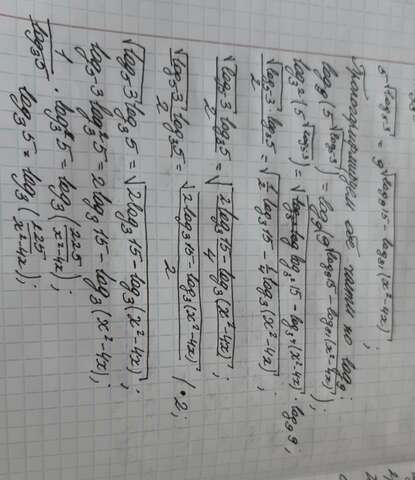 5^√(log₅3) = 9^√(log₉15 - log₈₁(x²-4x));
Прологарифмируем обе части по log₉:
log₉(5^√(log₅3)) = log₉(9^√(log₉15 - log₈₁(x²-4x)));
log₃²(5^√(log₅3)) = √(log₃²15 - log₃⁴(x²-4x)) · log₉9;
√(log₅3)/2 log₃5 = √(1/2 log₃15 - 1/4 log₃(x²-4x));
√(log₅3)/2 log₃5 = √((2log₃15 - log₃(x²-4x))/4);
√(log₅3)/2 log₃5 = √(2log₃15 - log₃(x²-4x))/2 | ·2;
√(log₅3) log₃5 = √(2log₃15 - log₃(x²-4x));
log₅3 log₃²5 = 2log₃15 - log₃(x²-4x);
1/log₃5 · log₃²5 = log₃(225/(x²-4x));
log₃5 = log₃(225/(x²-4x));